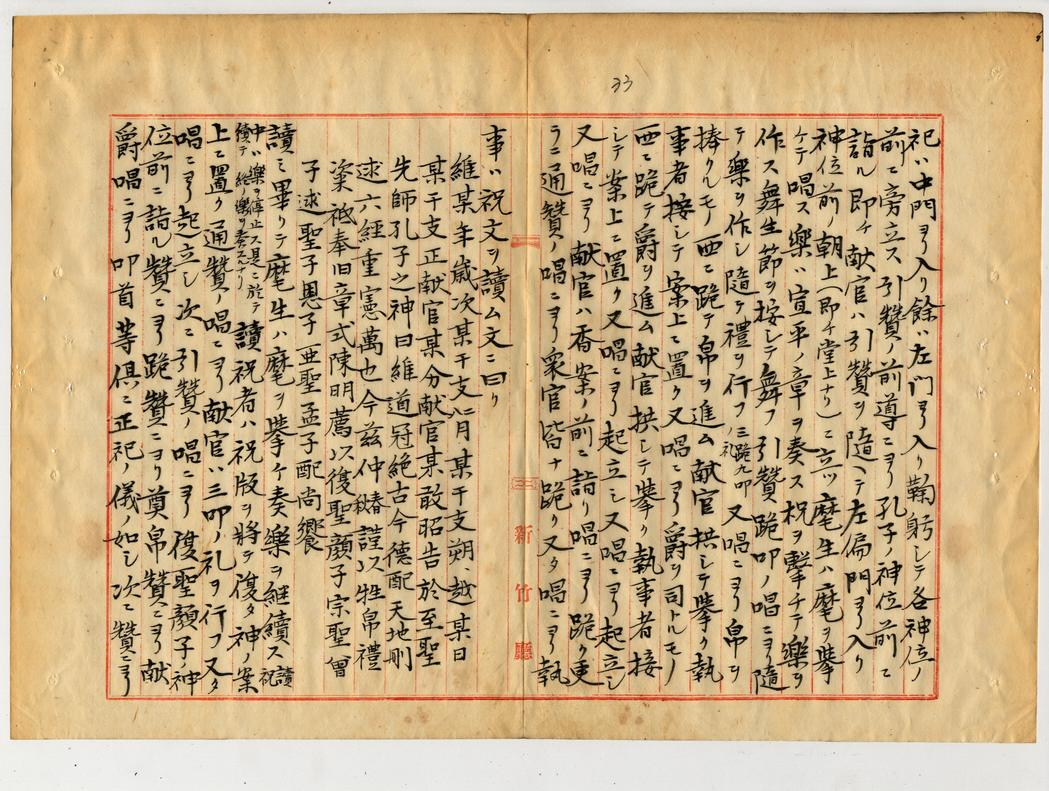 33
祀ハ中門ヨリ入リ餘ハ左門ヨリ入リ鞠躬シテ各神位ノ
前ニ旁立ス引贊ノ前導ニヨリ孔子ノ神位前ニ
詣ル即チ献官ハ引贊ヲ隨ヘテ左偏門ヨリ入リ
神位前ノ朝上(即チ堂上ナリ)ニ立ツ麾生ハ麾ヲ擧
ケテ唱ス樂ハ宣平ノ章ヲ奏ス柷ヲ擊チテ樂ヲ
作ス舞生節ヲ按シテ舞フ引贊跪叩ノ唱ニヨリ隨
テ樂ヲ作シ隨テ禮ヲ行フ三跪九叩ノ礼又唱ニヨリ帛ヲ
捧クルモノ西ニ跪テ帛ヲ進ム献官拱シテ擧ク執
事者接シテ案上ニ置ク又唱ニヨリ爵ヲ司トルモノ
西ニ跪テ爵ヲ進ム献官拱シテ擧ク執事者接
シテ案上ニ置ク又唱ニヨリ起立シ又唱ニヨリ起立シ
又唱ニヨリ献官ハ香案ノ前ニ詣リ唱ニヨリ跪ク更
ラニ通贊ノ唱ニヨリ衆官皆ナ跪ク又タ唱ニヨリ執
新竹廳
事ハ祝文ヲ讀ム文ニ曰ク
維某年歲次某干支 月某干支朔、越某日
某干支正献官某分献官某敢昭告於至聖
先師孔子之神曰維 道冠絶古今德配天地刪
述六經垂憲萬世今茲仲春秋謹以牲帛禮
粢祗奉旧章式陳明薦以復聖顔子宗聖曾
子述聖子思子亜聖孟子配尚饗
讀ミ畢リテ麾生ハ麾ヲ擧ケ奏樂ヲ継續ス讀祝
中ハ樂ヲ停止ス是ニ於テ續テ 樂ヲ奏スナリ讀祝者ハ祝版ヲ將テ復タ神ノ案
上ニ置ク通贊ノ唱ニヨリ献官ハ三叩ノ礼ヲ行フ又タ
唱ニヨリ起立シ次ニ引贊ノ唱ニヨリ復聖顔子ノ神
位前ニ詣ル贊ニヨリ跪贊ニヨリ奠帛贊ニヨリ献
爵唱ニヨリ叩首等俱ニ正祀ノ儀ノ如シ次ニ贊ニヨリ